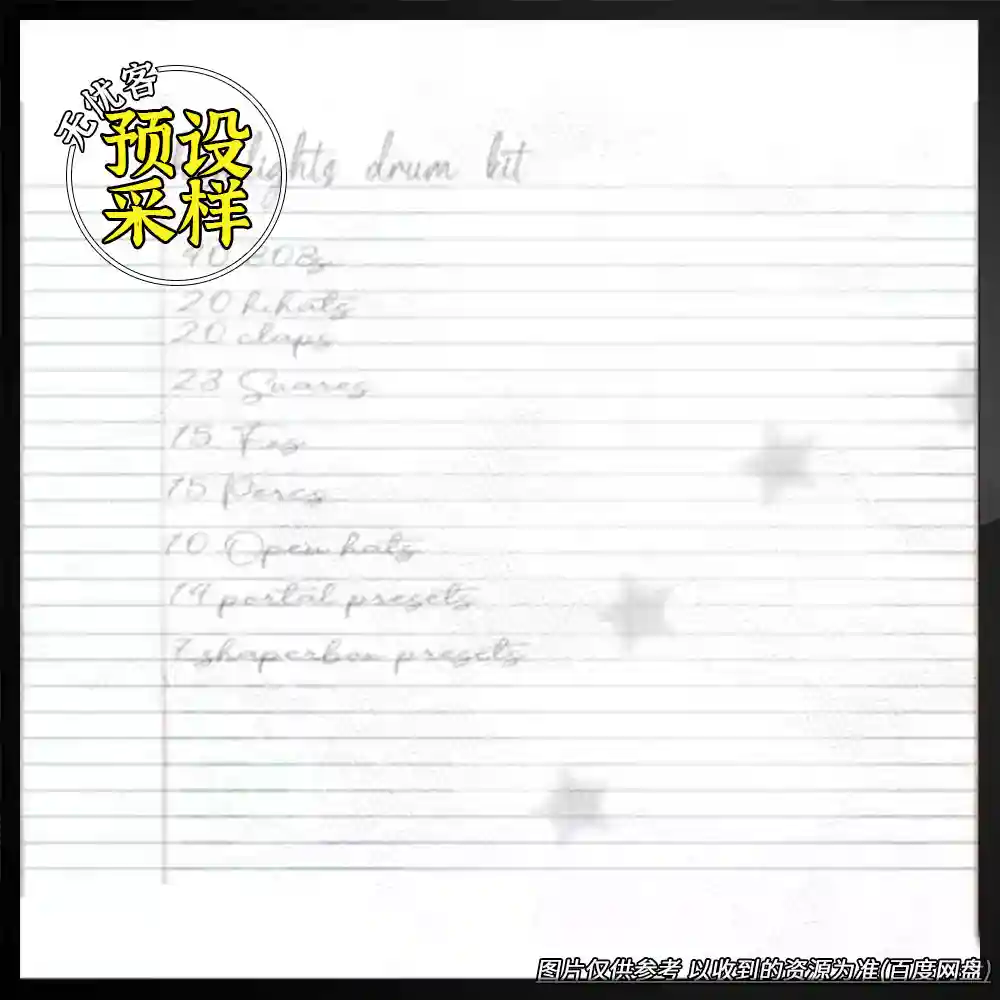 无忧客
预设
采样
lights drum kit
40 808s
20 hihats
20 claps
23 Snares
15 Fxs
15 Percs
10 Open hats
14 portal presets
7 shaperbox presets
图片仅供参考 以收到的资源为准(百度网盘)